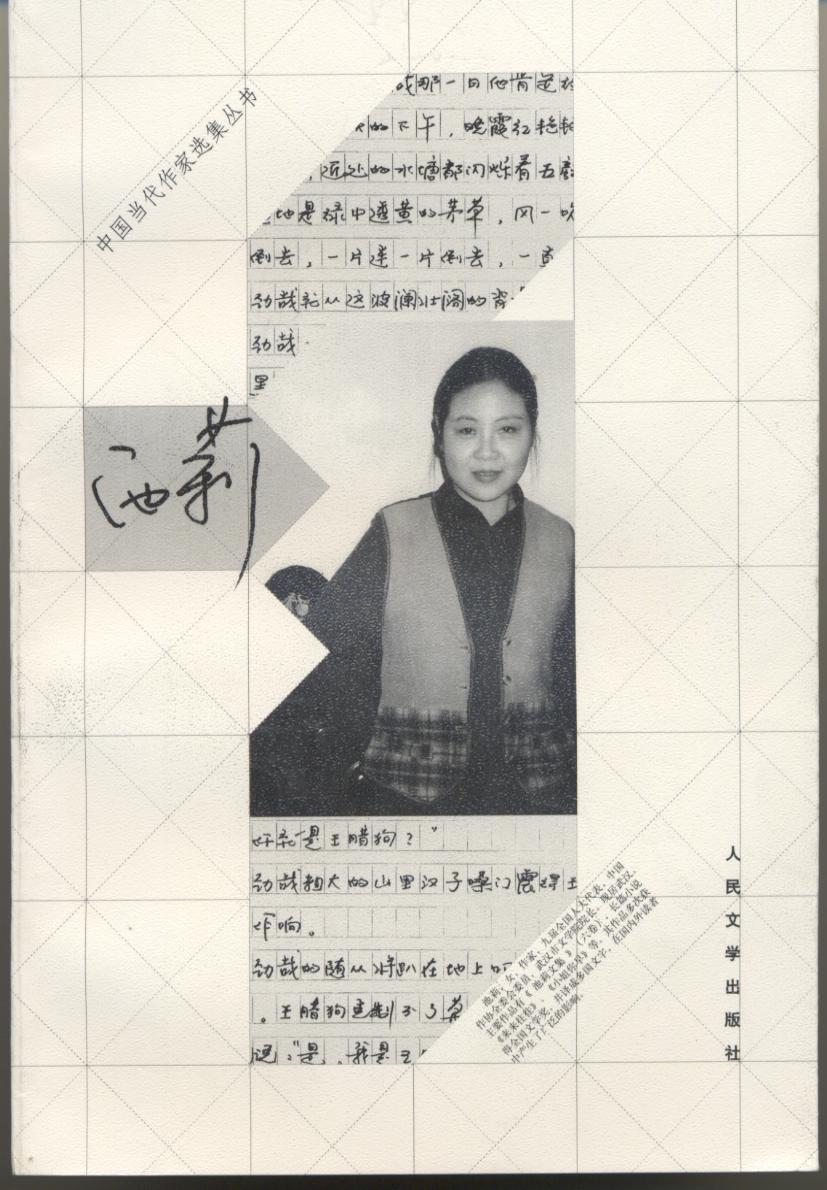 中国当代作家选集丛书
哉那一日他肯定
的下午，晚霞红艳
，近处的水塘都闪烁着五
地是绿中透黄的茅草，风一吹
倒去，一片连一片倒去，一直
劲哉就从这波澜壮阔的背
劲哉
里
池莉
好就是王腊狗？”
劲哉粗大的山里汉子嗓门震得
作响。
劲哉的随从将趴在地上
。王腊狗
是，我是王
池莉，女，作家，九届全国人大代表，中国
作协全委会委员，武汉市文学院院长，现居武汉。
主要作品有《池莉文集》（六卷），长篇小说
《来来往往》、《小姐你早》等，其作品多次获
得全国文学奖，并译成多国文字，在国内外读者
中产生了广泛的影响。
人民文学出版社